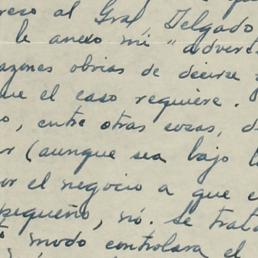 reso al Gral Delgado
le anexo mi "advert
azones obvias de decirse
que el caso requiere.
o, entre otras cosas, d
r (aunque sea bajo l
or el negocio a que e
pequeño, no. Se trata
modo controlara el